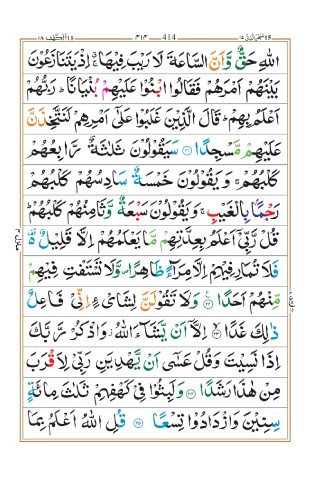 اللّٰهِ حَقٌّ وَّاَنَّ السَّاعَةَ لَا رَيْبَ فِيْهَا ۚ اِذْ يَتَنَازَعُوْنَ
بَيْنَهُمْ اَمْرَهُمْ فَقَالُوا ابْنُوْا عَلَيْهِمْ بُنْيَانًا ؕ رَبُّهُمْ
اَعْلَمُ بِهِمْ ؕ قَالَ الَّذِيْنَ غَلَبُوْا عَلٰٓى اَمْرِهِمْ لَنَتَّخِذَنَّ
عَلَيْهِمْ مَّسْجِدًا ﴿۲۱﴾ سَيَقُوْلُوْنَ ثَلٰثَةٌ رَّابِعُهُمْ
كَلْبُهُمْ ۚ وَيَقُوْلُوْنَ خَمْسَةٌ سَادِسُهُمْ كَلْبُهُمْ
رَجْمًۢا بِالْغَيْبِ ۚ وَيَقُوْلُوْنَ سَبْعَةٌ وَّثَامِنُهُمْ كَلْبُهُمْ ؕ
قُلْ رَّبِّيْٓ اَعْلَمُ بِعِدَّتِهِمْ مَّا يَعْلَمُهُمْ اِلَّا قَلِيْلٌ ۫
فَلَا تُمَارِ فِيْهِمْ اِلَّا مِرَآءً ظَاهِرًا ۪ وَّلَا تَسْتَفْتِ فِيْهِمْ
مِّنْهُمْ اَحَدًا ﴿۲۲﴾ وَلَا تَقُوْلَنَّ لِشَايْءٍ اِنِّيْ فَاعِلٌ
ذٰلِكَ غَدًا ﴿۲۳﴾ اِلَّآ اَنْ يَّشَآءَ اللّٰهُ ؗ وَاذْكُرْ رَّبَّكَ
اِذَا نَسِيْتَ وَقُلْ عَسٰٓى اَنْ يَّهْدِيَنِ رَبِّيْ لِاَقْرَبَ
مِنْ هٰذَا رَشَدًا ﴿۲۴﴾ وَلَبِثُوْا فِيْ كَهْفِهِمْ ثَلٰثَ مِائَةٍ
سِنِيْنَ وَازْدَادُوْا تِسْعًا ﴿۲۵﴾ قُلِ اللّٰهُ اَعْلَمُ بِمَا